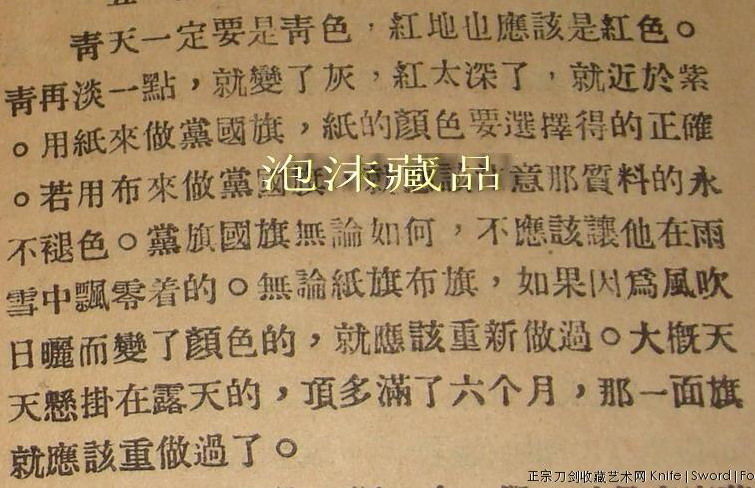 青天一定要是青色，紅地也應該是紅色。
青再淡一點，就變了灰，紅太深了，就近於紫
。用紙來做黨國旗，紙的顏色要選擇得的正確
。若用布來做黨國 意那質料的永
泡沫藏品
不褪色。黨旗國旗無論如何，不應該讓他在雨
雪中飄零着的。無論紙旗布旗，如果因爲風吹
日曬而變了顏色的，就應該重新做過。大概天
天懸掛在露天的，頂多滿了六个月，那一面旗
就應該重做過了。
正宗刀剑收藏艺术网 Knife | Sword | Fo